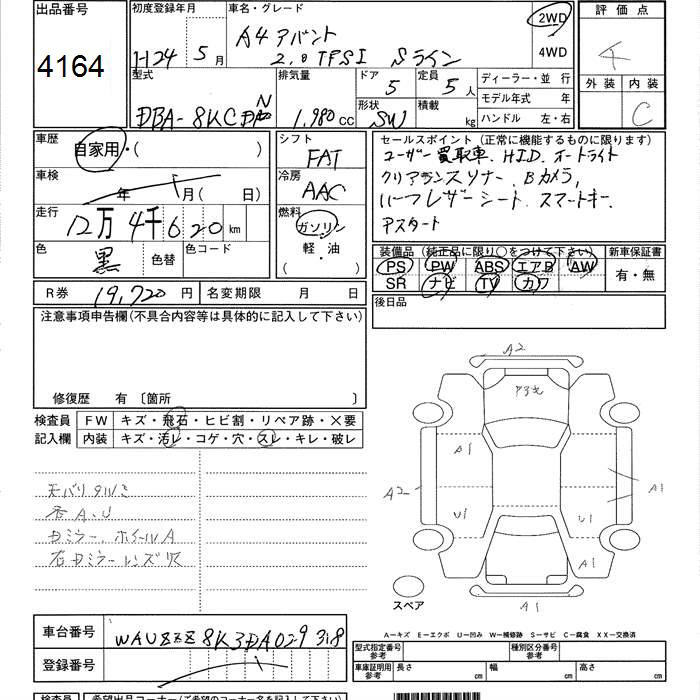 出品番号
4164
初度登録年月
H24 5月
車名・グレード
A4 アバント
2.0 TFSI Sライン
2WD
4WD
評価点
4
外装 内装
C
型式
DBA-8KCDN
排気量
1,980 cc
ドア
5
定員
5人
形状
SW
積載
kg
ディーラー・並 行
モデル年式 年
ハンドル 左・右
車歴
自家用・( )
車検
年 月( 日)
走行
12万4千620 km
色
黒
色替
色コード
シフト
FAT
冷房
AAC
燃料
ガソリン
軽・油
( )
セールスポイント(正常に機能するものに限ります)
ユーザー買取車、HID、オートライト
クリアランスソナー、Bカメラ、
ハーフレザーシート、スマートキー、
Pスタート
装備品(純正品に限り○をつけて下さい)
PS PW ABS エアB AW
SR ナビ TV カワ
新車保証書
有・無
後日品
R券 19,720 円
名変期限 月 日
注意事項申告欄(不具合内容等は具体的に記入して下さい)
修復歴 有〔箇所 〕
検査員
記入欄
FW キズ・飛石・ヒビ割・リペア跡・×要
内装 キズ・汚レ・コゲ・穴・スレ・キレ・破レ
天バリタルミ
各A、U
Dミラー、ホイールA
右Dミラーレンズ欠
A2
A1
A2
A1
U1
U1
A1
スペア
A1
A−キズ E−エクボ U−凹み W−補修跡 S−サビ C−腐食 XX−交換済
車台番号
WAUZZZ8K3DA029318
登録番号
型式指定番号
参考
種別区分番号
参考
車庫証明用
参考
長さ cm
幅 cm
高さ cm
検査員
希望出品コーナー(ご希望のコーナー名を記入して下さい)